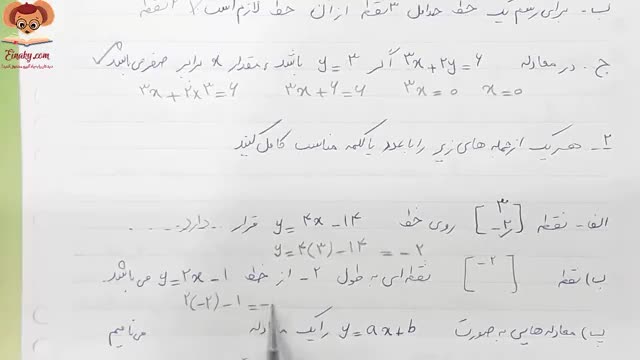 Einaky.com
ب- برای رسم یک خط حداقل ۳ نقطه از آن خط لازم است x ۲ نقطه
ج. در معادله ۳x+۲y=۶ اگر y=۳ باشد، مقدار x برابر صفر می باشد ✓
۳x+۲×۳=۶ ۳x+۶=۶ ۳x=۰ x=۰
۲- هر یک از جمله های زیر را با عدد یا کلمه مناسب کامل کنید
الف- نقطه [۳ -۲] روی خط y=۴x-۱۴ قرار ..دارد....
y=۴(۳)-۱۴=-۲
ب) نقطه [-۲ ] نقطه ای به طول -۲ از خط y=۲x-۱ می باشد.
۲(-۲)-۱=-
پ) معادله هایی به صورت y=ax+b را یک معادله می نامیم